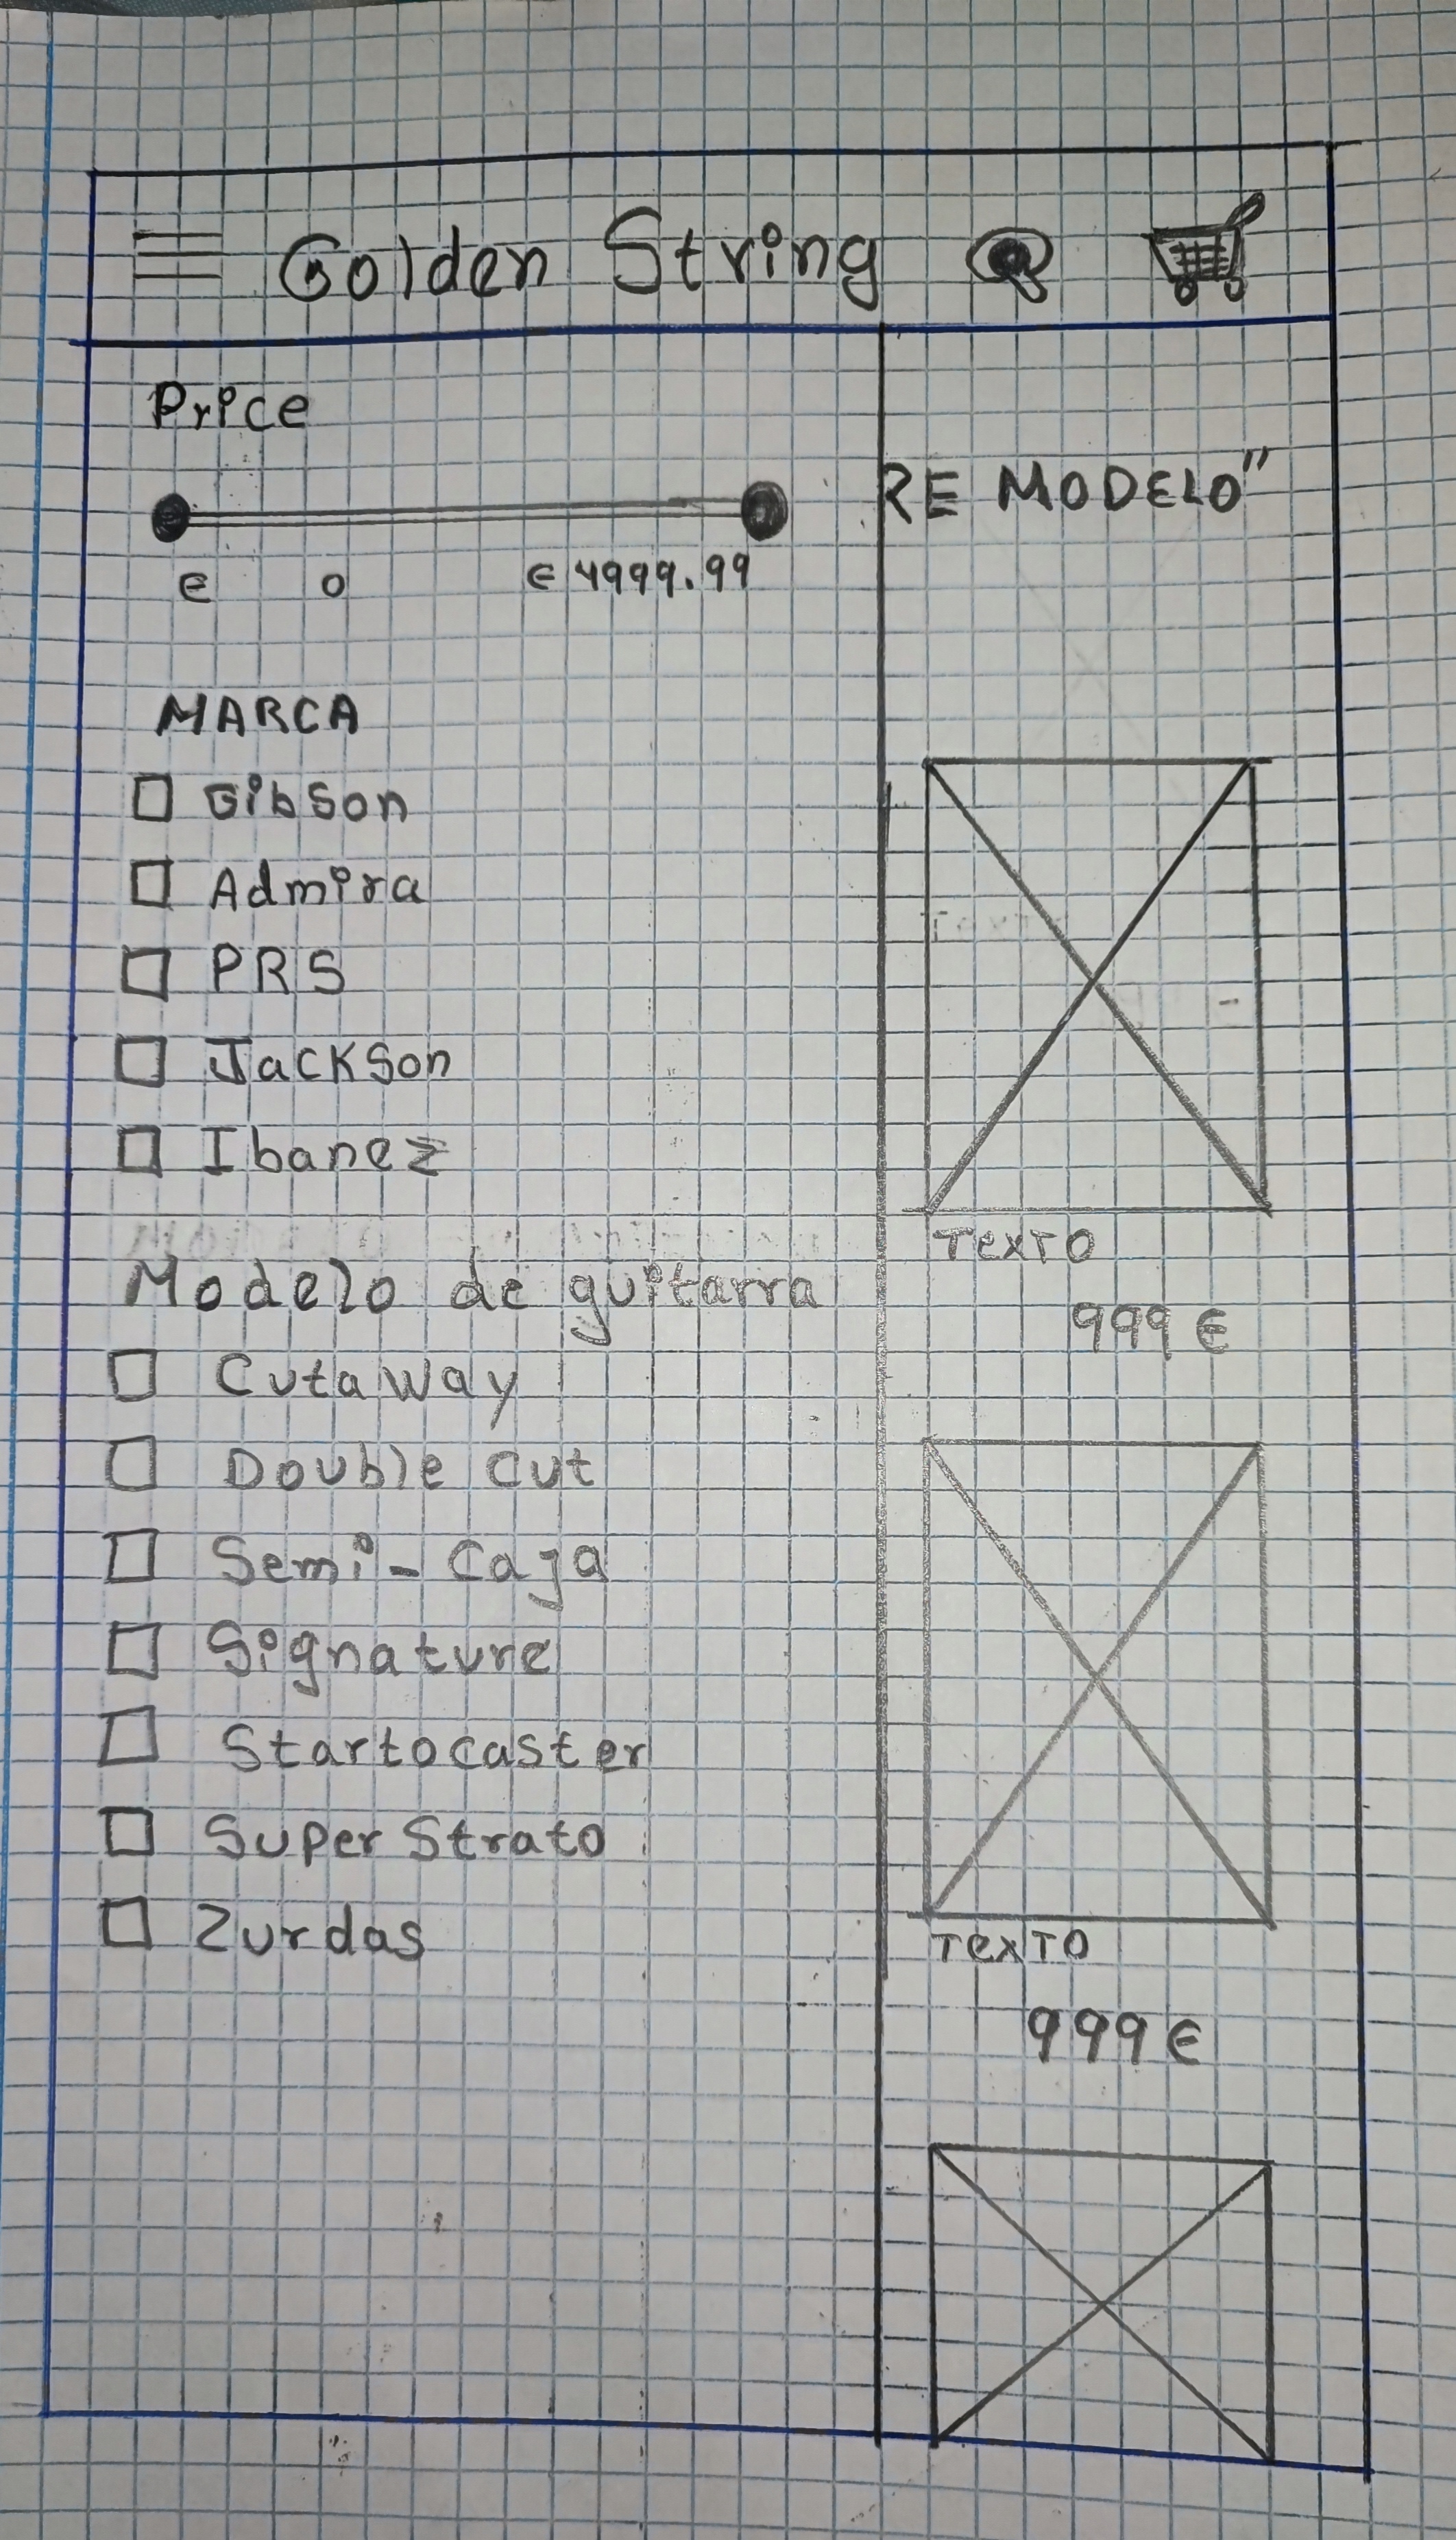 Golden String
Price
€ 0 € 4999.99
RE MODELO"
MARCA
Gibson
Admira
PRS
Jackson
Ibanez
Modelo de guitarra
Cutaway
Double cut
Semi-Caja
Signature
Startocaster
Super Strato
Zurdas
TEXTO
999€
TEXTO
999€